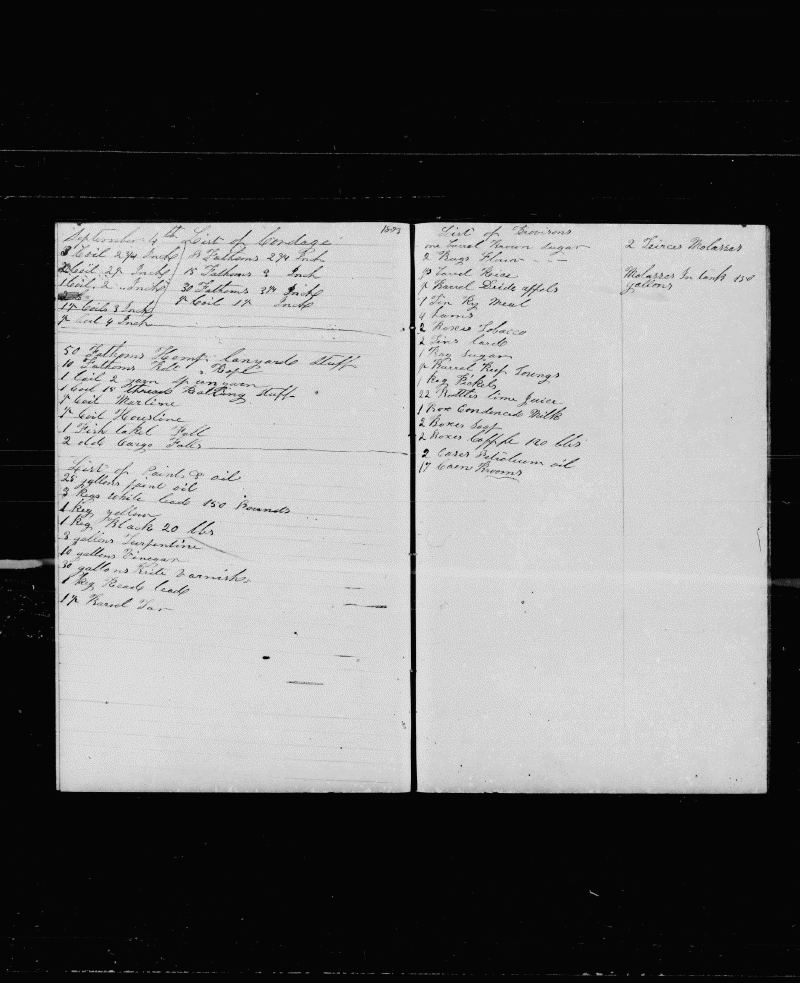 1883
September 4th List of Cordage
3 Coil 2 3/4 Inch 8 Fathoms 2 3/4 Inch
Coil 2 Inch 15 Fathoms 3 Inch
1 Coil 2 Inch 30 Fathoms Inch
Coils 3 Inch Coil Inch
Coil 4 Inch
50 Fathoms Hemp lanyard Stuff
10 Fathoms Rope
1 Coil 2 yarn
1 Coil 15 thread Ratling Stuff
Coil Marline
Coil Housline
1 Fish Fall
2 old Cargo Falls
List of Paint & oil
25 gallons paint oil
3 Kegs white lead 150 Pounds
1 Keg yellow
1 Keg Black 20 lbs
3 gallons Turpentine
10 gallons Vinegar
30 gallons varnish
1 Keg lead
Barrel Tar
List of Provisions
one barrel Brown Sugar
2 Bags Flour
Barrel Rice
Barrel Dride appels
1 Tin Keg Meal
4 hams
2 Boxes Tobacco
2 Tins lard
1 Bag Sugar
Barrel Beef Toungs
1 Keg Pickels
22 Bottles lime Juice
1 Box Condenced Milk
2 Boxes Soap
2 Boxes 120 lbs
2 Cases Petroleum oil
17 Brooms
2 Teirces Molasses
Molasses In tank 150
gallons